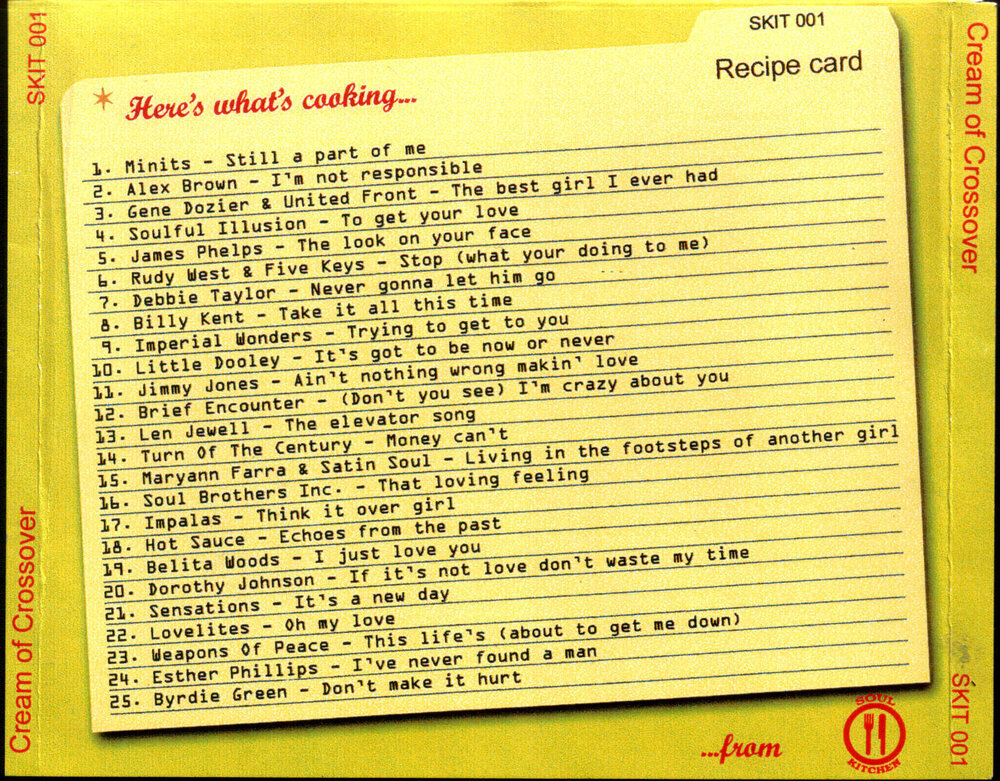 SKIT 001
Cream of Crossover
SKIT 001
Recipe card
Here's what's cooking...
1. Minits - Still a part of me
2. Alex Brown - I'm not responsible
3. Gene Dozier & United Front - The best girl I ever had
4. Soulful Illusion - To get your love
5. James Phelps - The look on your face
6. Rudy West & Five Keys - Stop (what your doing to me)
7. Debbie Taylor - Never gonna let him go
8. Billy Kent - Take it all this time
9. Imperial Wonders - Trying to get to you
10. Little Dooley - It's got to be now or never
11. Jimmy Jones - Ain't nothing wrong makin' love
12. Brief Encounter - (Don't you see) I'm crazy about you
13. Len Jewell - The elevator song
14. Turn Of The Century - Money can't
15. Maryann Farra & Satin Soul - Living in the footsteps of another girl
16. Soul Brothers Inc. - That loving feeling
17. Impalas - Think it over girl
18. Hot Sauce - Echoes from the past
19. Belita Woods - I just love you
20. Dorothy Johnson - If it's not love don't waste my time
21. Sensations - It's a new day
22. Lovelites - Oh my love
23. Weapons Of Peace - This life's (about to get me down)
24. Esther Phillips - I've never found a man
25. Byrdie Green - Don't make it hurt
...from
SOUL
KITCHEN
Cream of Crossover
SKIT 001